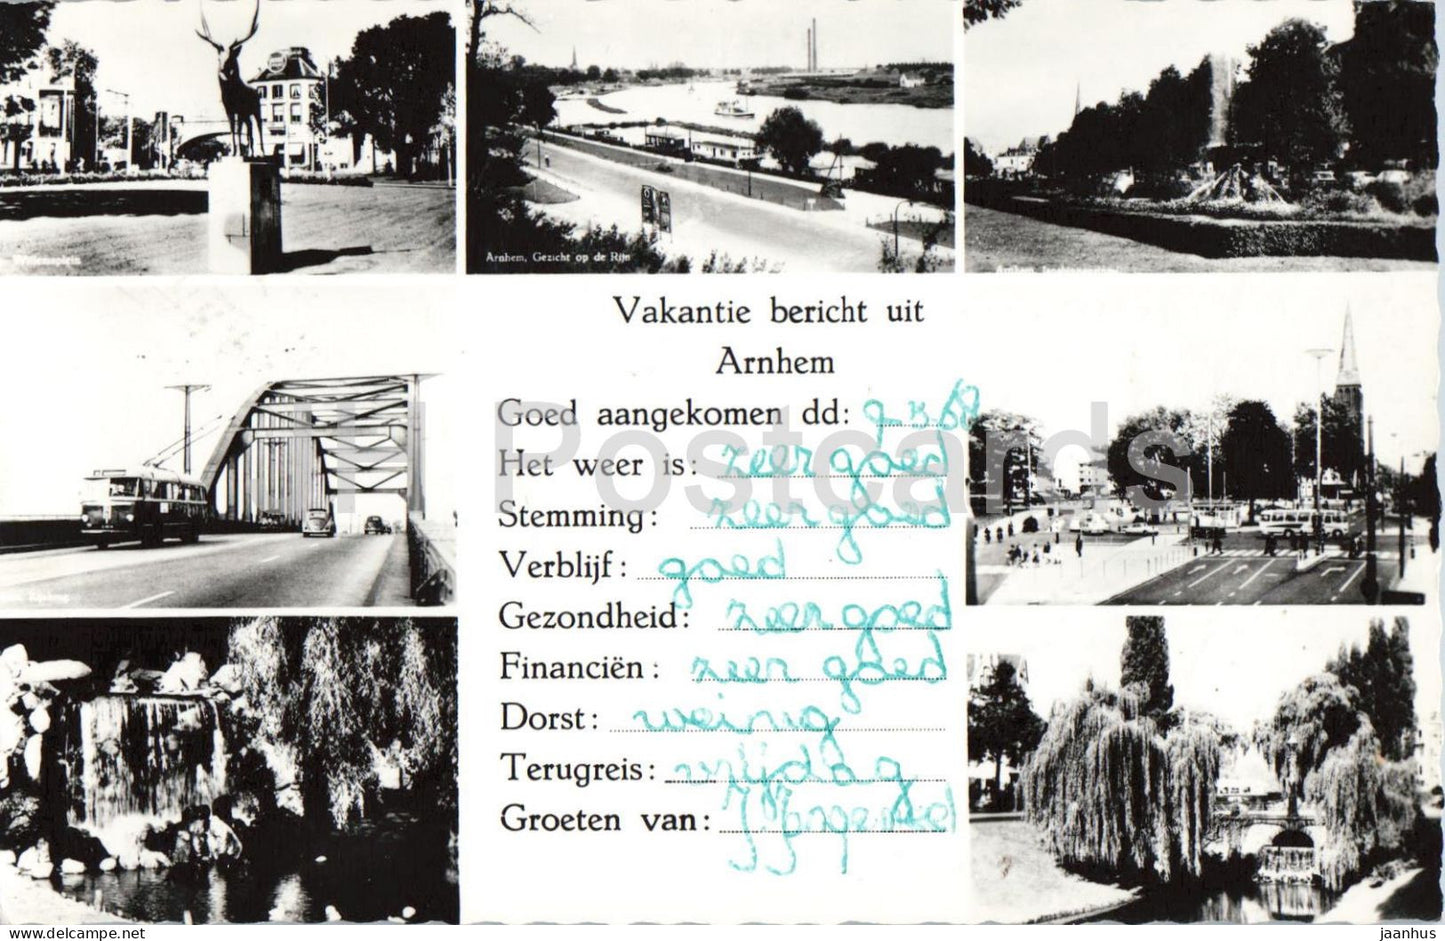 Willemsplein
Arnhem, Gezicht op de Rijn
Arnhem,
Vakantie bericht uit
Arnhem
Goed aangekomen dd:
Het weer is: zeer goed
Stemming: zeer goed
Verblijf: goed
Gezondheid: zeer goed
Financiën: zeer goed
Dorst: weinig
Terugreis: vrijdag
Groeten van:
Rijnbrug
H Postcards
delcampe.net
jaanhus